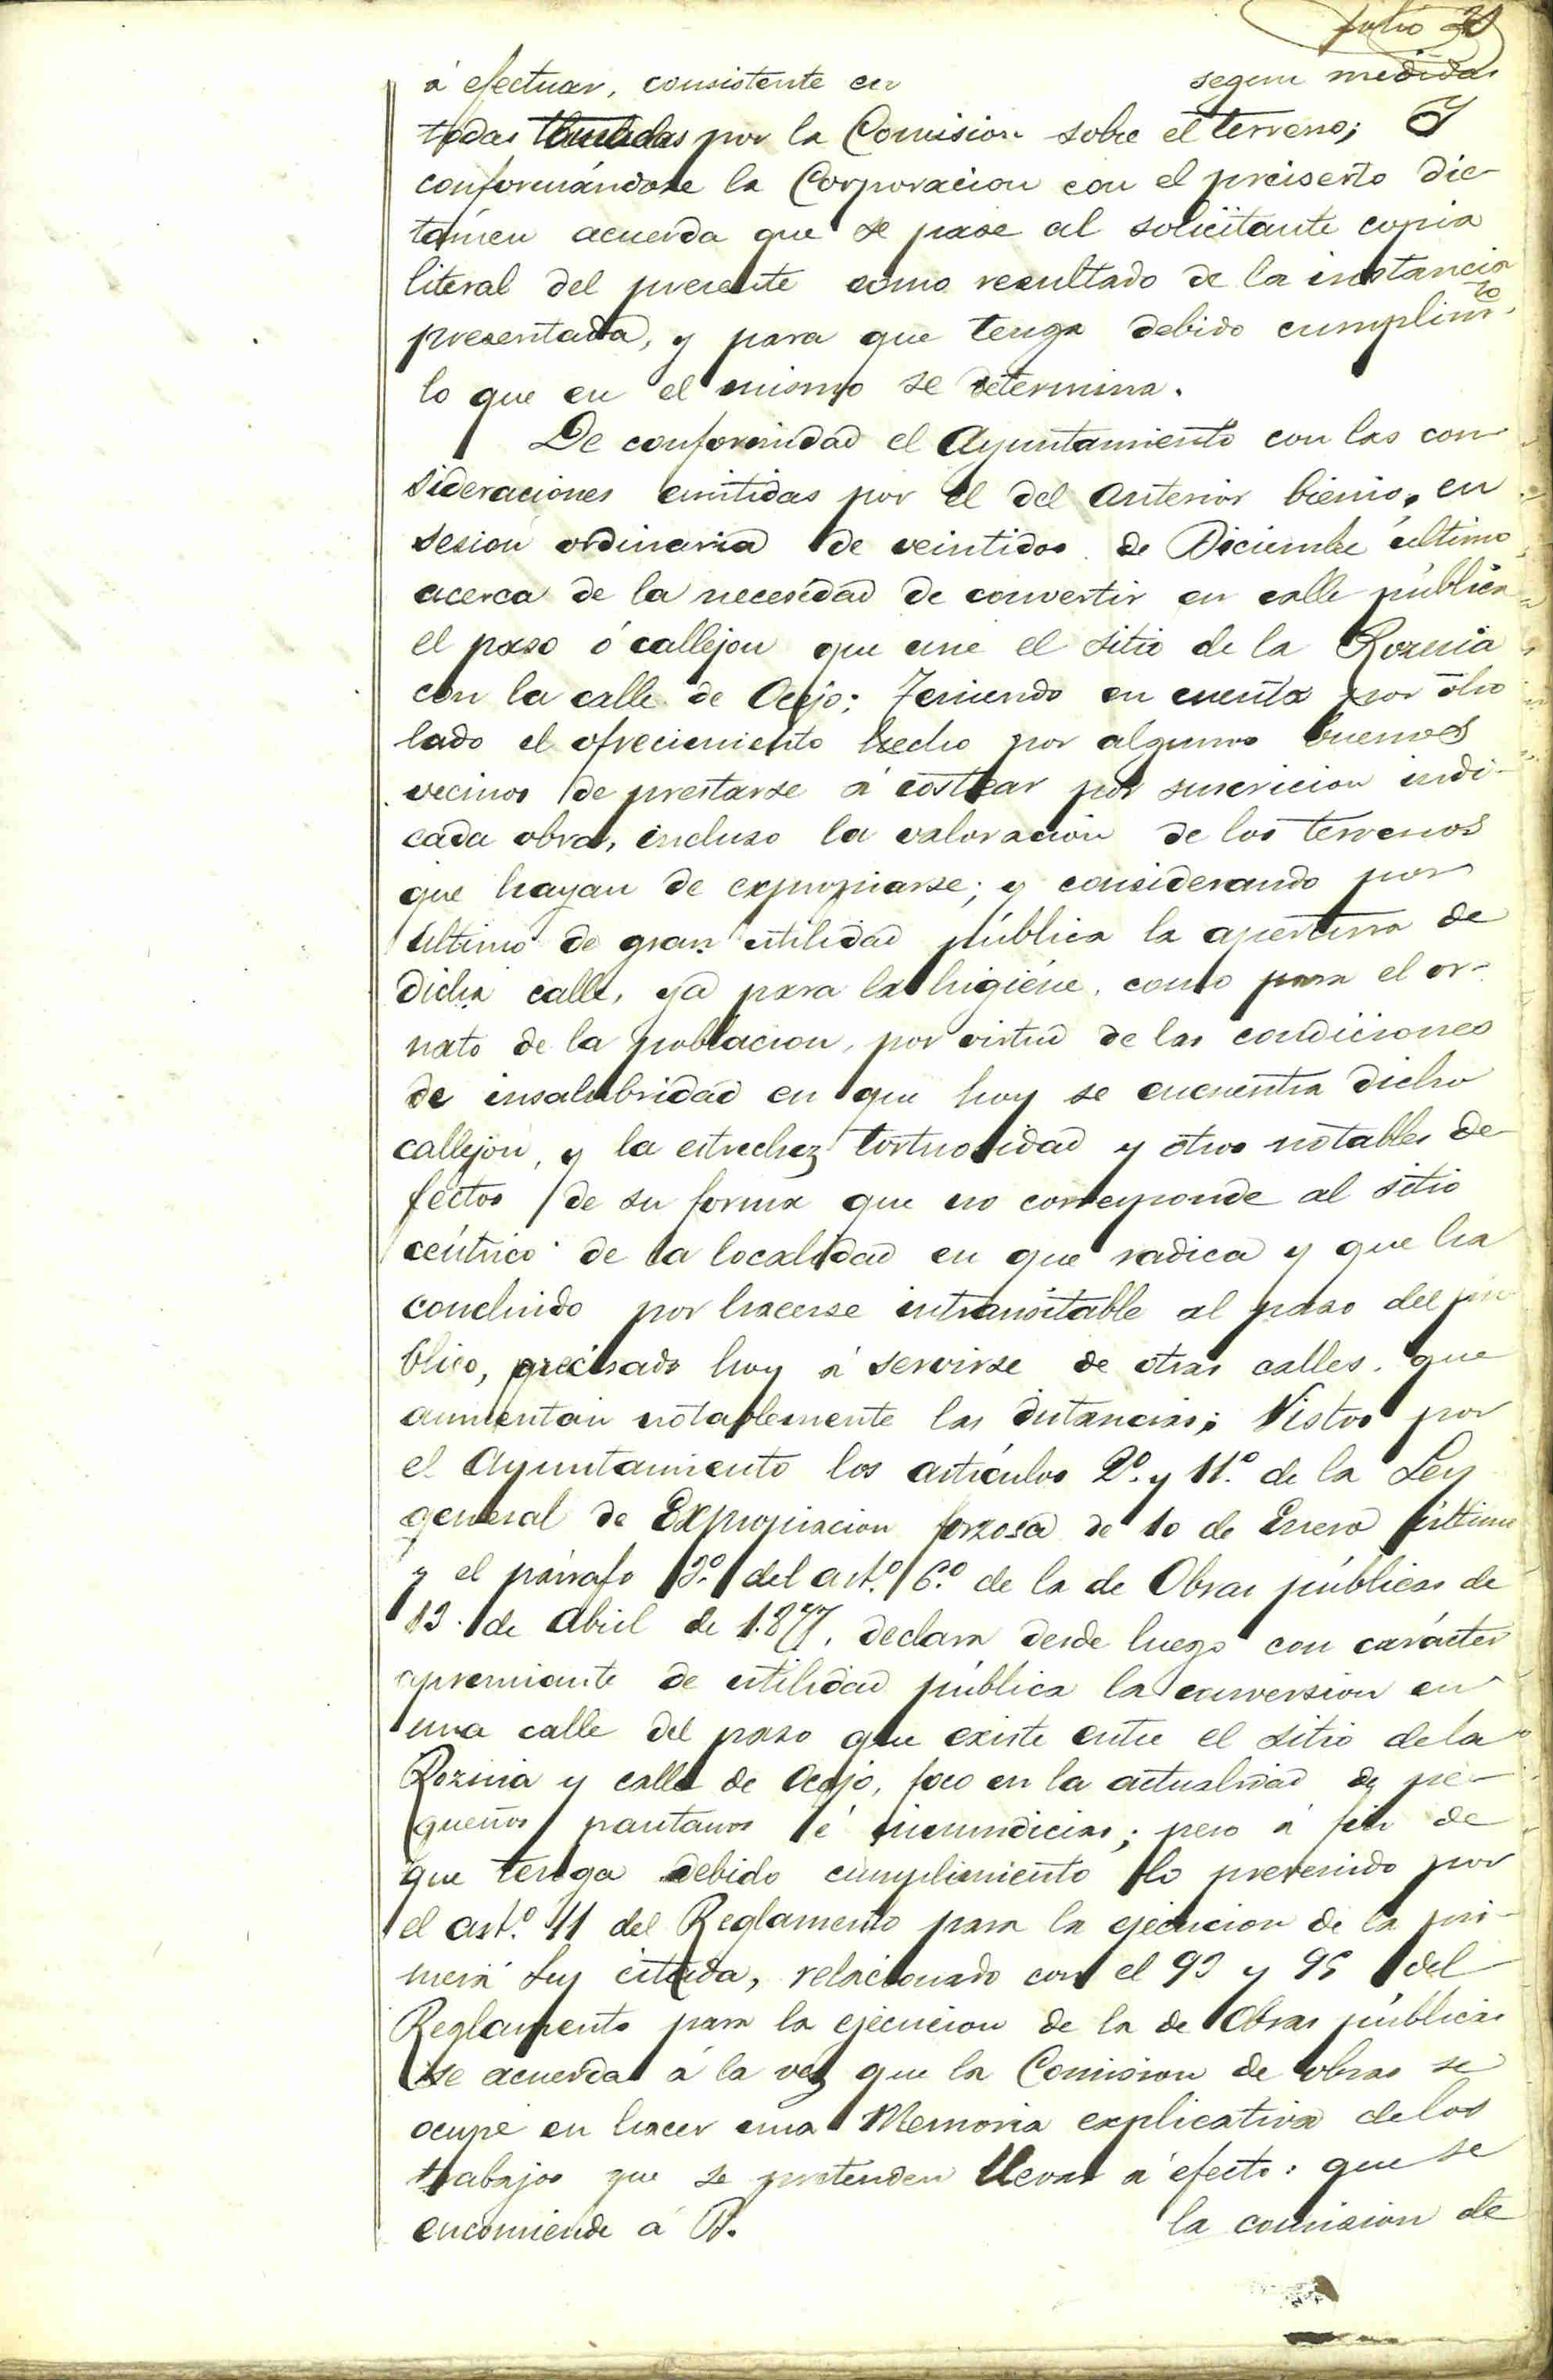 Julio 20
á efectuar, consistente en segun medidas
todas tomadas por la Comision sobre el terreno; Y
conformándose la Corporacion con el preiserto dic-
támen acuerda que se pase al solicitante copia
literal del presente como resultado de la instancia
presentada, y para que tenga debido cumplimto.
lo que en el mismo se determina.
De conformidad el Ayuntamiento con las con-
sideraciones emitidas por el del anterior bienio, en
sesion ordinaria de veintidos de Diciembre último
acerca de la necesidad de convertir en calle pública
el paso ó callejon que une el sitio de la
con la calle de Ocejo; Teniendo en cuenta por otro
lado el ofrecimiento hecho por algunos buenos
vecinos de prestarse á costear por suscricion indi-
cada obra, incluso la valoracion de los terrenos
que hayan de expropiarse; y considerando por
último de gran utilidad pública la apertura de
dicha calle, ya para la higiéne, como para el or-
nato de la poblacion, por virtud de las condiciones
de insalubridad en que hoy se encuentra dicho
callejon, y la estrechez tortuosidad y otros notables de-
fectos de su forma que no corresponde al sitio
céntrico de la localidad en que radica y que ha
concluido por hacerse intransitable al paso del pú
blico, precisado hoy á servirse de otras calles, que
aumentan notablemente las distancias; Vistos por
el Ayuntamiento los artículos 2º. y 11.º de la Ley
general de Expropiacion forzosa de 10 de Enero último
y el párrafo 2º. del art.º 6.º de la de Obras públicas de
13 de Abril de 1.877, declara desde luego con carácter
apremiante de utilidad pública la conversion en
una calle del paso que existe entre el sitio de la
y calle de Ocejo, foco en la actualidad de pe-
queños pantanos é inmundicias; pero á fin de
que tenga debido cumplimiento lo prevenido por
el art.º 11 del Reglamento para la ejecucion de la pri-
mera Ley citada, relacionado con el 93 y 95 del
Reglamento para la ejecucion de la de Obras públicas
se acuerda á la vez que la Comision de obras se
ocupe en hacer una Memoria explicativa de los
trabajos que se pretenden llevar á efecto: que se
encomiende á D. la comision de